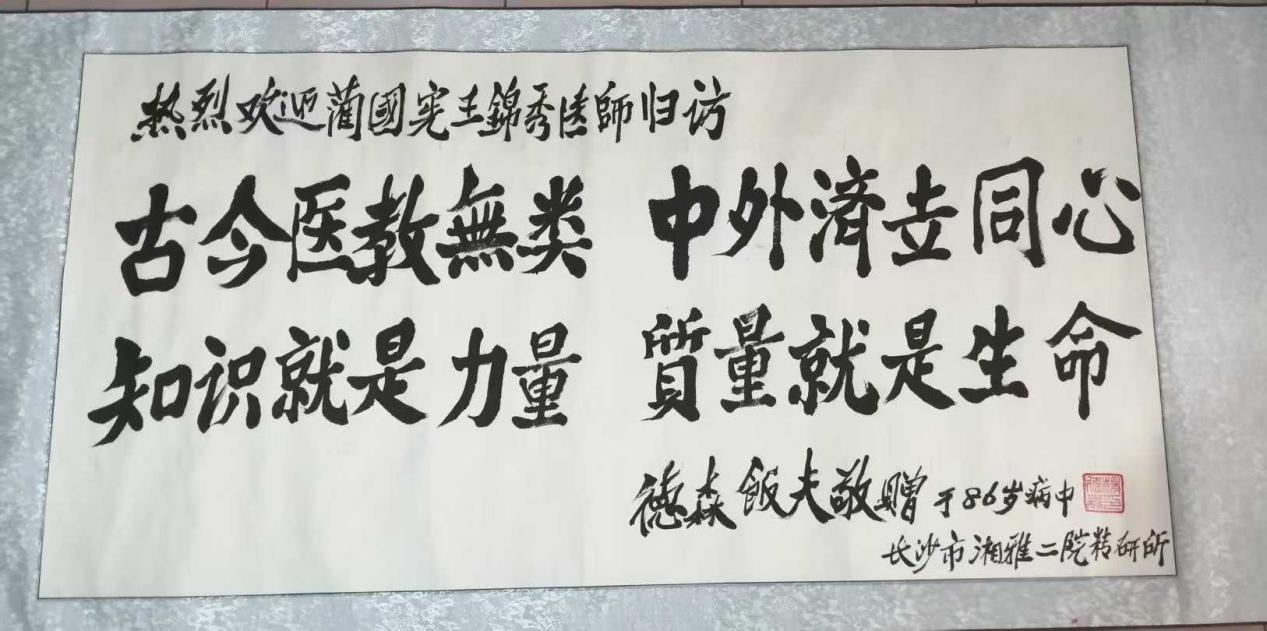 热烈欢迎蔺國宪王錦秀医師归访
古今医教無类 中外濟世同心
知识就是力量 質量就是生命
德森飯夫敬贈 于86岁病中
长沙市湘雅二院精研所